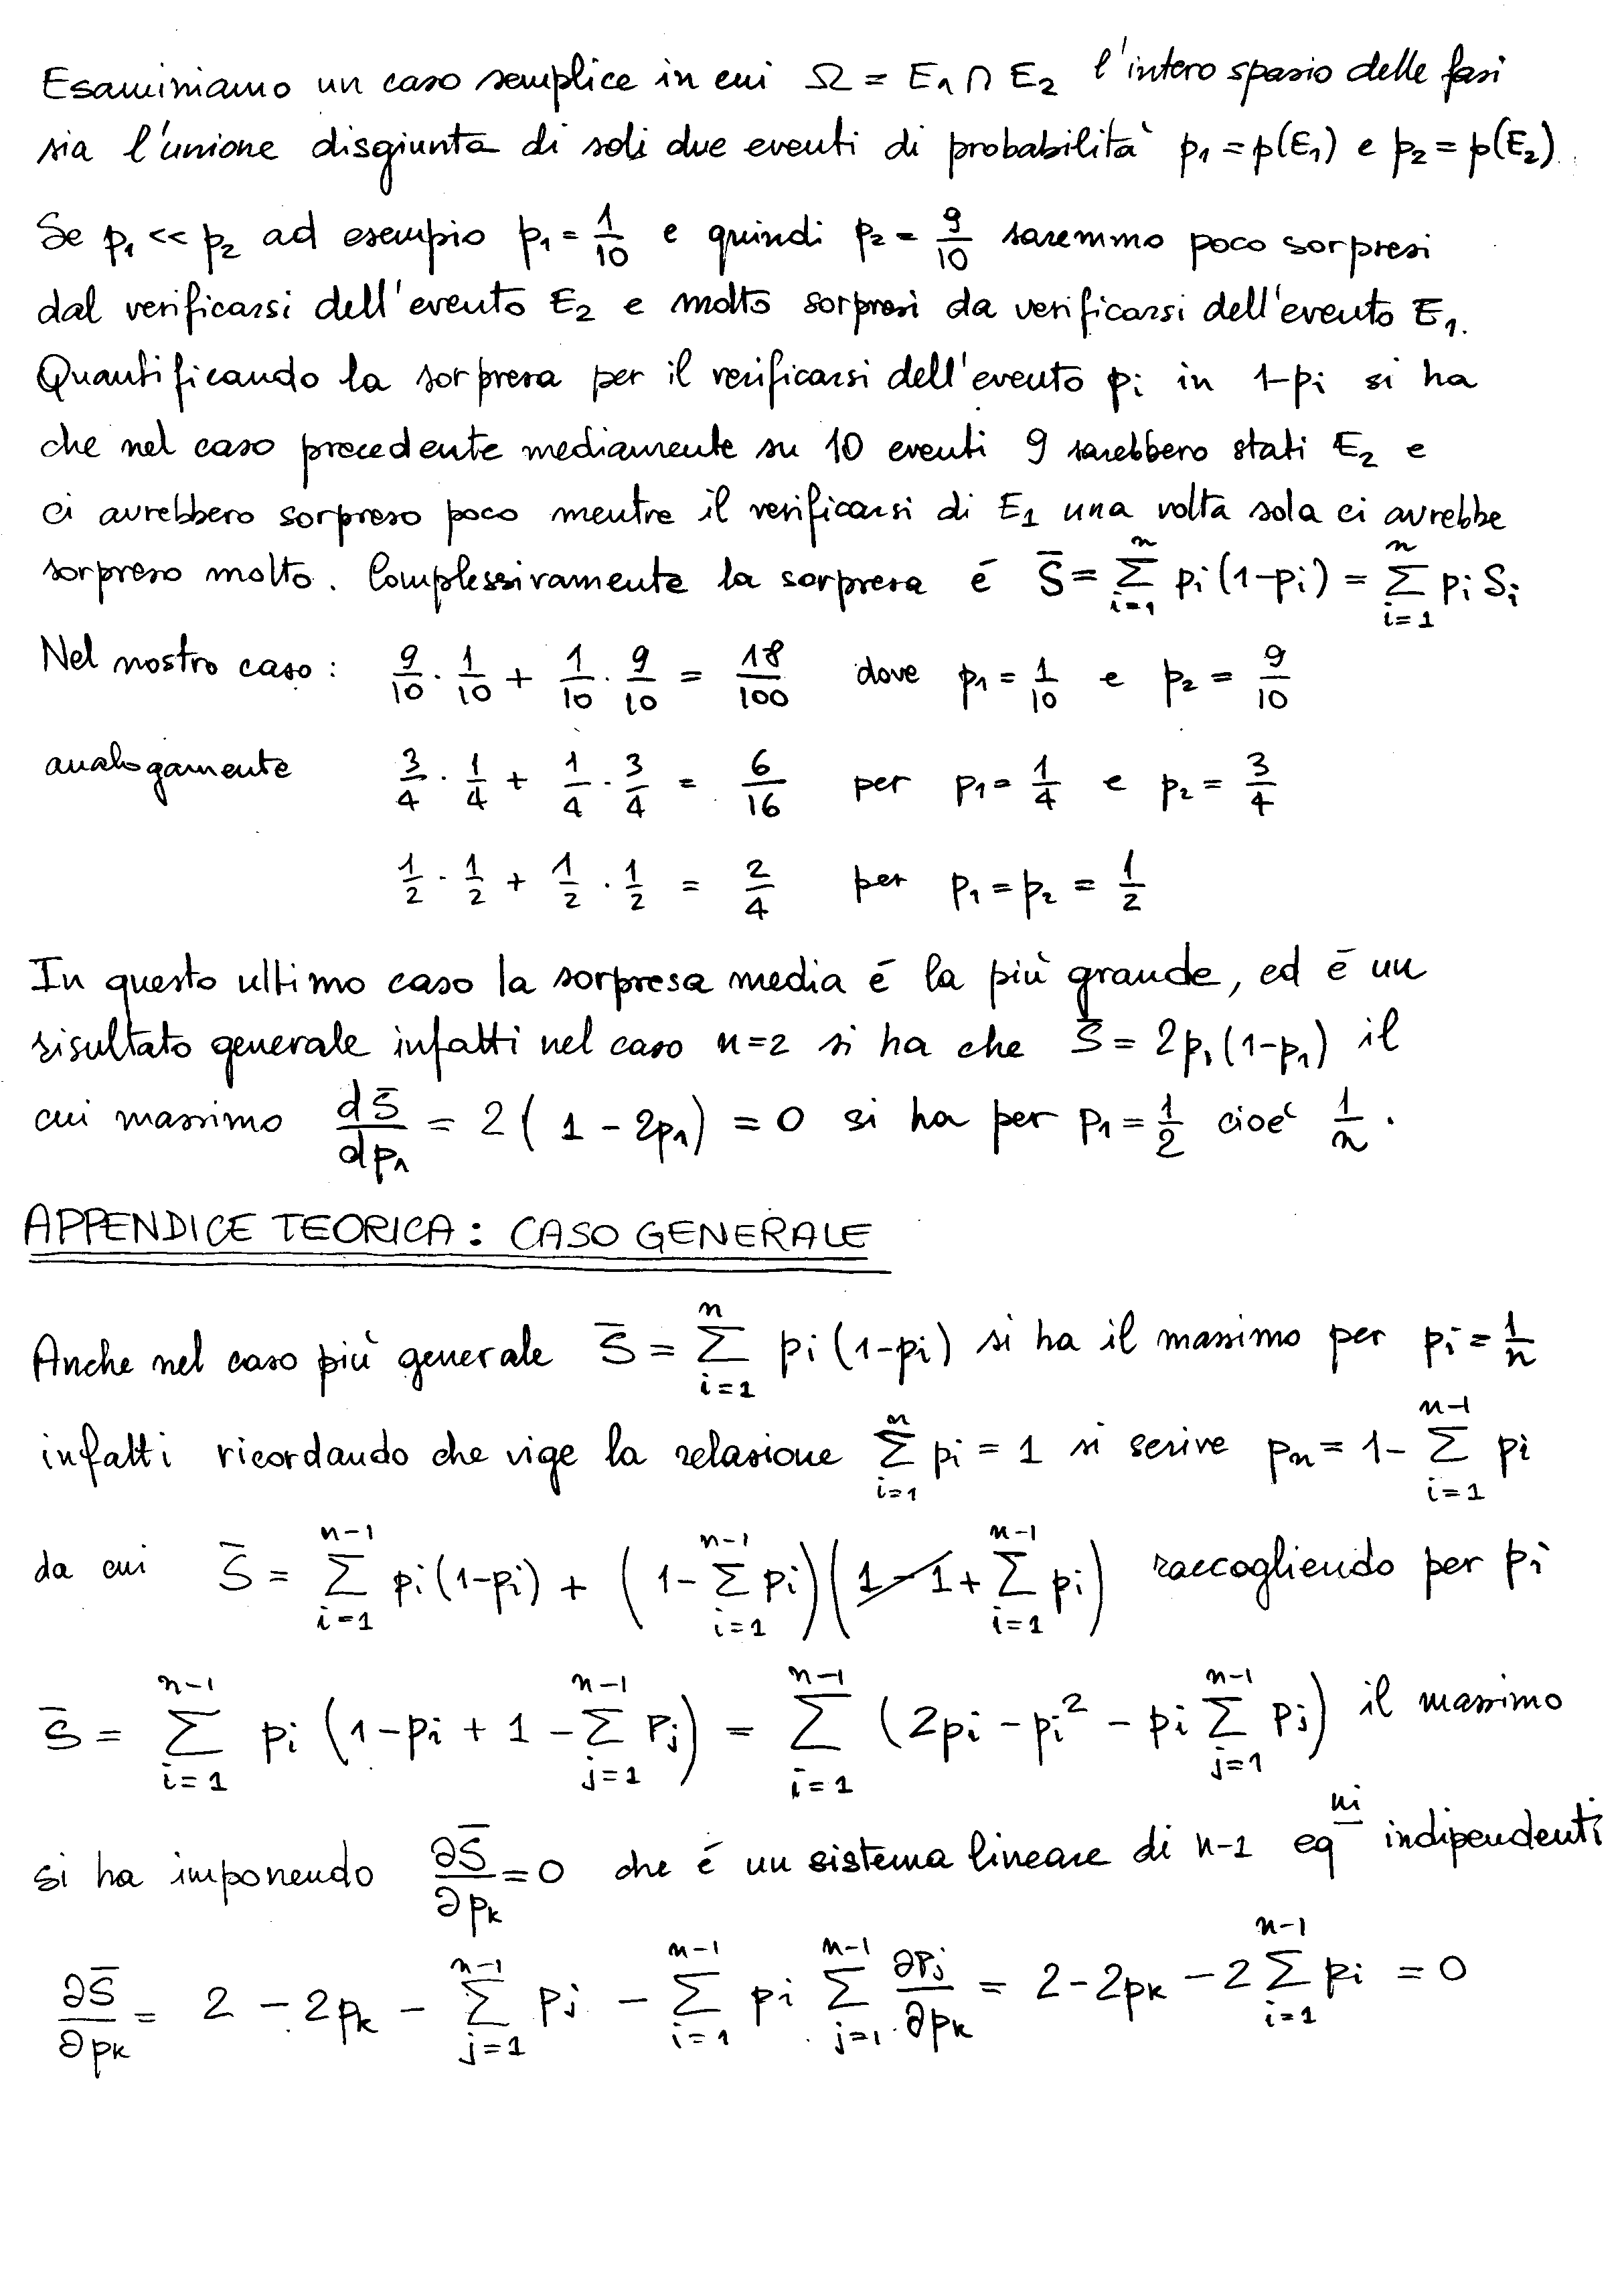 Esaminiamo un caso semplice in cui Ω = E₁ ∩ E₂ l'intero spazio delle fasi
sia l'unione disgiunta di soli due eventi di probabilità p₁ = p(E₁) e p₂ = p(E₂).
Se p₁ << p₂ ad esempio p₁ = 1/10 e quindi p₂ = 9/10 saremmo poco sorpresi
dal verificarsi dell'evento E₂ e molto sorpresi da verificarsi dell'evento E₁.
Quantificando la sorpresa per il verificarsi dell'evento pᵢ in 1-pᵢ si ha
che nel caso precedente mediamente su 10 eventi 9 sarebbero stati E₂ e
ci avrebbero sorpreso poco mentre il verificarsi di E₁ una volta sola ci avrebbe
sorpreso molto. Complessivamente la sorpresa é S̄ = ∑_{i=1}^{n} pᵢ(1-pᵢ) = ∑_{i=1}^{n} pᵢ Sᵢ
Nel nostro caso: 9/10 · 1/10 + 1/10 · 9/10 = 18/100 dove p₁ = 1/10 e p₂ = 9/10
analogamente 3/4 · 1/4 + 1/4 · 3/4 = 6/16 per p₁ = 1/4 e p₂ = 3/4
1/2 · 1/2 + 1/2 · 1/2 = 2/4 per p₁ = p₂ = 1/2
In questo ultimo caso la sorpresa media é la più grande, ed é un
risultato generale infatti nel caso n=2 si ha che S̄ = 2p₁(1-p₁) il
cui massimo dS̄/dp₁ = 2(1 - 2p₁) = 0 si ha per p₁ = 1/2 cioé 1/n.
APPENDICE TEORICA: CASO GENERALE
Anche nel caso più generale S̄ = ∑_{i=1}^{n} pᵢ(1-pᵢ) si ha il massimo per pᵢ = 1/n
infatti ricordando che vige la relazione ∑_{i=1}^{n} pᵢ = 1 si scrive pₙ = 1- ∑_{i=1}^{n-1} pᵢ
da cui S̄ = ∑_{i=1}^{n-1} pᵢ(1-pᵢ) + (1- ∑_{i=1}^{n-1} pᵢ)(1-1+ ∑_{i=1}^{n-1} pᵢ) raccogliendo per pᵢ
S̄ = ∑_{i=1}^{n-1} pᵢ (1-pᵢ + 1 - ∑_{j=1}^{n-1} pⱼ) = ∑_{i=1}^{n-1} (2pᵢ - pᵢ² - pᵢ ∑_{j=1}^{n-1} pⱼ) il massimo
si ha imponendo ∂S̄/∂pₖ = 0 che é un sistema lineare di n-1 eq^{ni} indipendenti
∂S̄/∂pₖ = 2 - 2pₖ - ∑_{j=1}^{n-1} pⱼ - ∑_{i=1}^{n-1} pᵢ ∑_{j=1}^{n-1} ∂pⱼ/∂pₖ = 2-2pₖ - 2 ∑_{i=1}^{n-1} pᵢ = 0